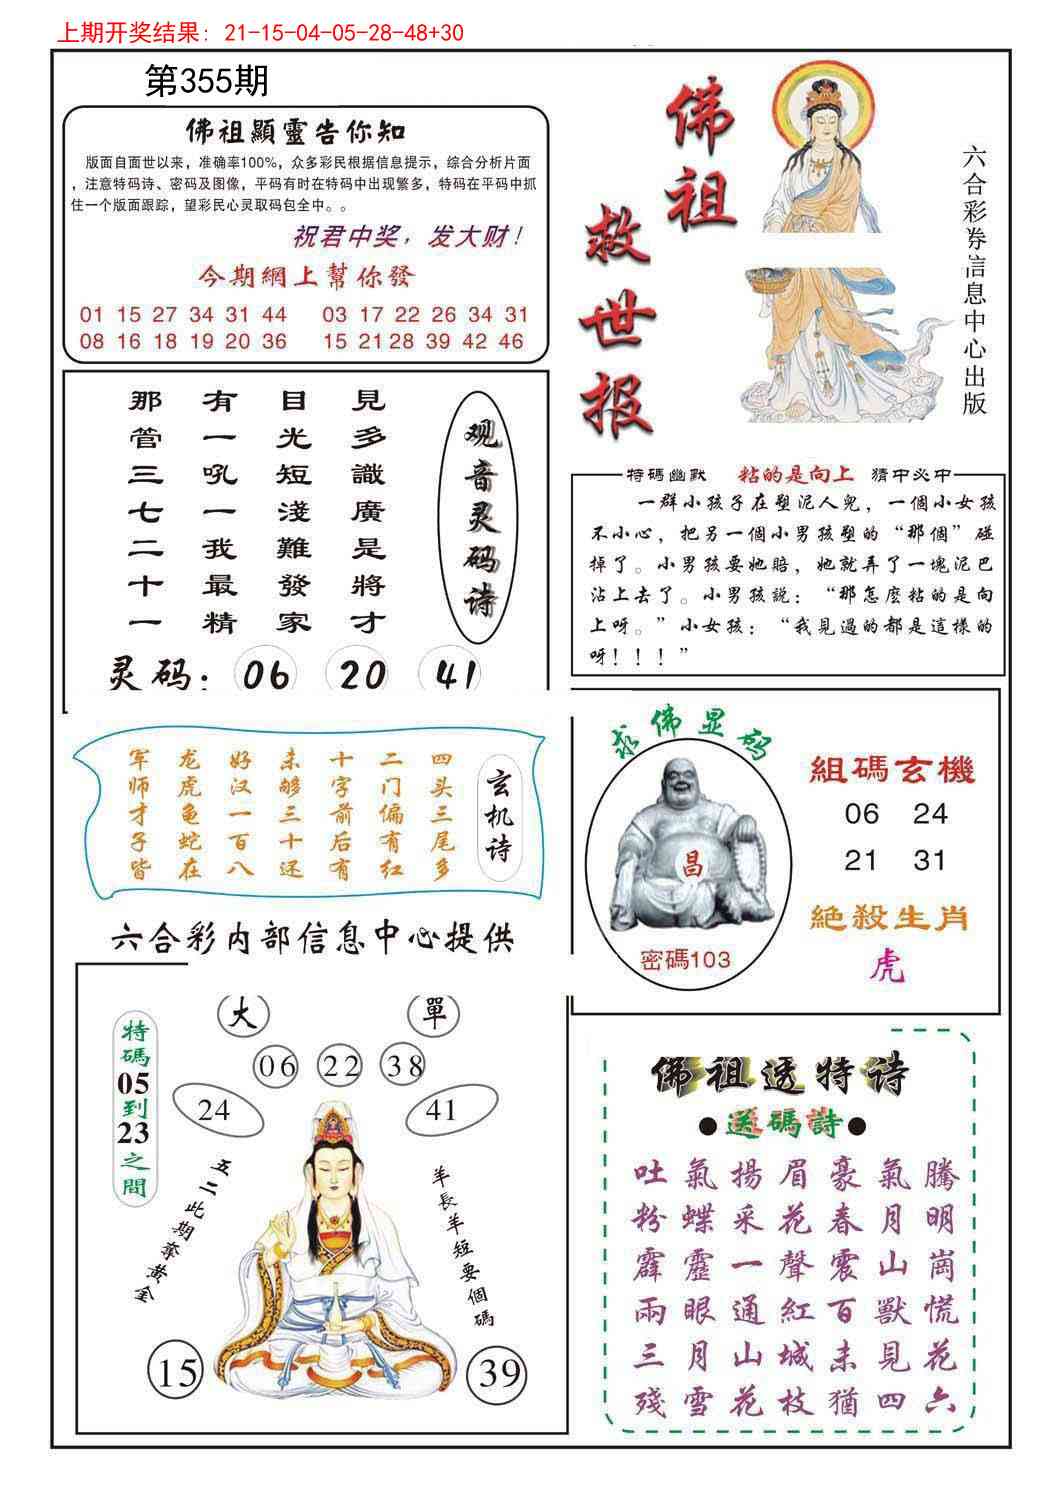 上期开奖结果: 21-15-04-05-28-48+30
第355期
佛祖顯靈告你知
版面自面世以来，准确率100%，众多彩民根据信息提示，综合分析片面
，注意特码诗、密码及图像，平码有时在特码中出现繁多，特码在平码中抓
住一个版面跟踪，望彩民心灵取码包全中。。
祝君中奖，发大财！
今期網上幫你發
01 15 27 34 31 44 03 17 22 26 34 31
08 16 18 19 20 36 15 21 28 39 42 46
佛祖
救世报
六合彩券信息中心出版
观音灵码诗
見多識廣是將才
目光短淺難發家
有一吼一我最精
那管三七二十一
灵码：06 20 41
特碼幽默 粘的是向上 猜中必中
一群小孩子在塑泥人兒，一個小女孩
不小心，把另一個小男孩塑的“那個”碰
掉了。小男孩要她賠，她就弄了一塊泥巴
沾上去了。小男孩説：“那怎麼粘的是向
上呀。”小女孩：“我見過的都是這樣的
呀！！！”
玄机诗
四头三尾多
二门偏有红
十字前后有
未够三十还
好汉一百八
龙虎龟蛇在
军师才子皆
六合彩内部信息中心提供
求佛显码
昌
密碼103
組碼玄機
06 24
21 31
絕殺生肖
虎
特碼05到23之間
大 單
06 22 38
24 41
五二此期奪黄金
羊長羊短要個碼
15 39
佛祖透特诗
●送碼詩●
吐氣揚眉豪氣騰
粉蝶采花春月明
霹靂一聲震山崗
兩眼通紅百獸慌
三月山城未見花
殘雪花枝猶四六